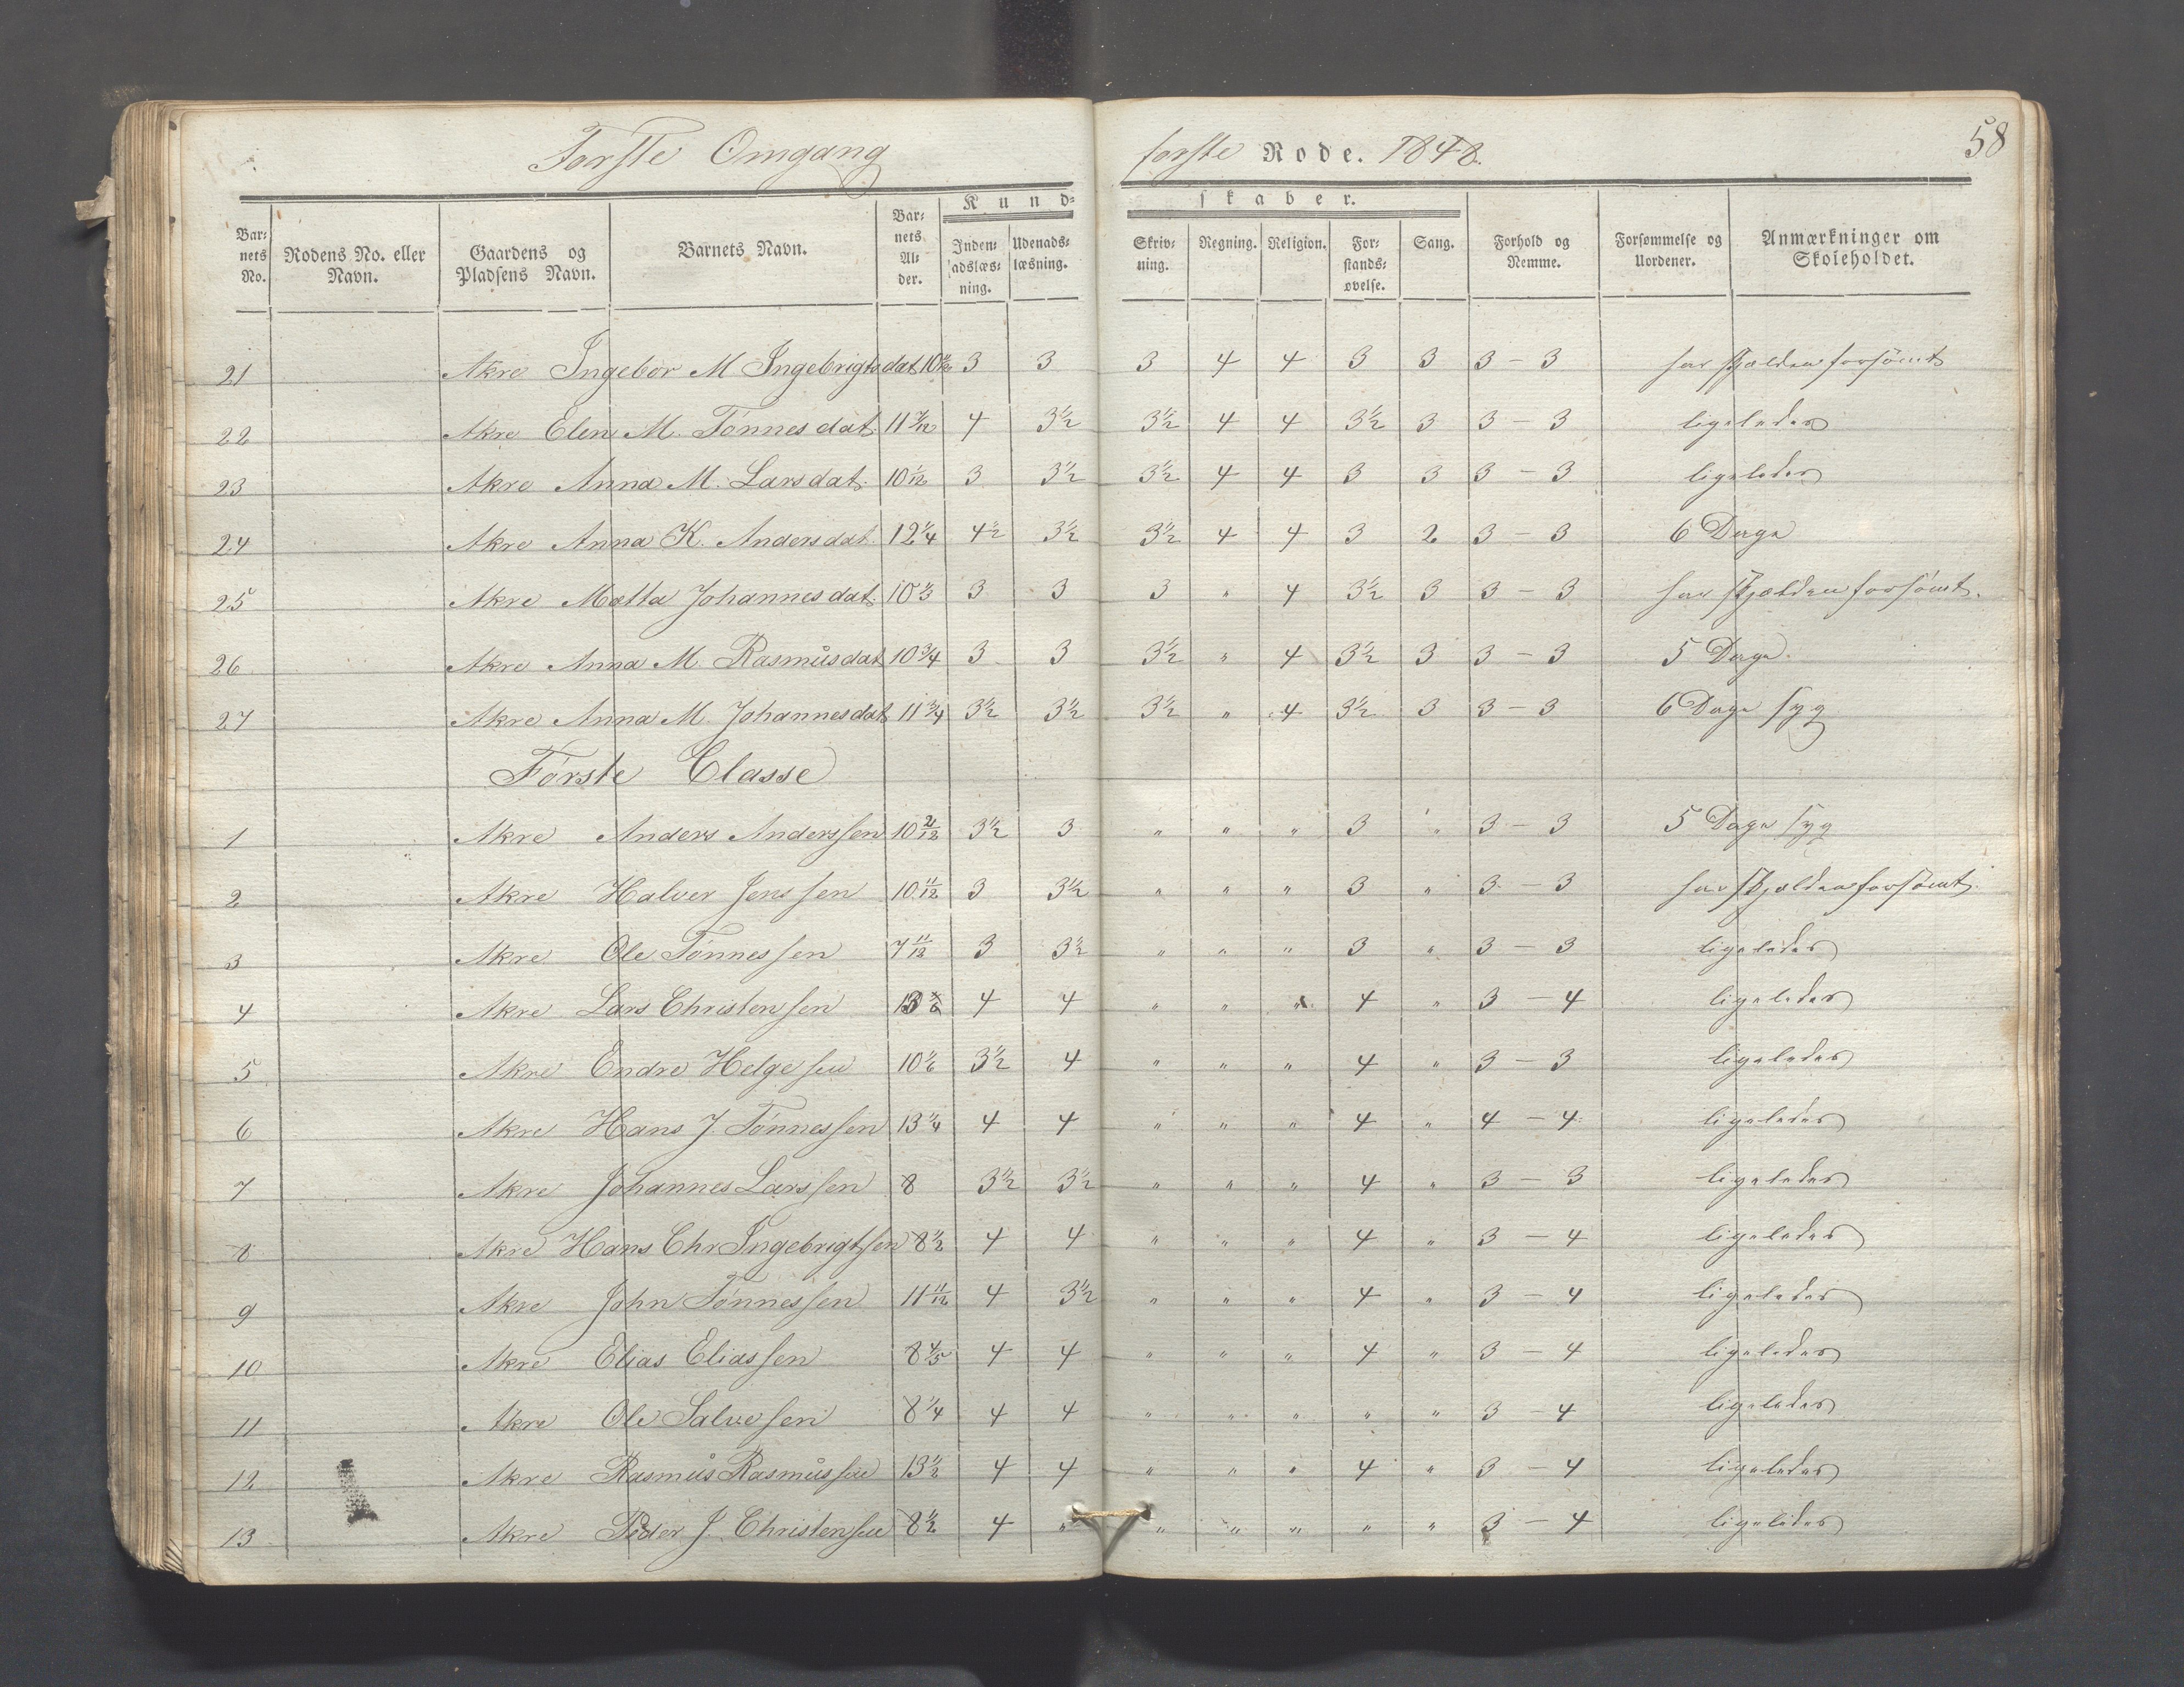 Første Omgang første Rode. 1848. 58
Kund- skaber.
Bar- nets No. Rodens No. eller Navn. Gaardens og Pladsens Navn. Barnets Navn. Bar- nets Al- der. Inden- adslæs- ning. Udenads- læsning. Skriv- ning. Regning. Religion. For- stands- øvelse. Sang. Forhold og Nemme. Forsømmelse og Uordener. Anmærkninger om Skoleholdet.
21 Akre Ingebor M Ingebrigtsdat 3 3 3 4 4 3 3 3 – 3 har sjælden forsömt
22 Akre Elen M. Tønnesdat. 11 7/12 4 3½ 3½ 4 4 3½ 3 3 – 3 ligeledes
23 Akre Anna M. Larsdat. 10 1/12 3 3½ 3½ 4 4 3 3 3 – 3 ligeledes
24 Akre Anna K. Andersdat. 12¼ 4½ 3½ 3½ 4 4 3 2 3 – 3 6 Dage
25 Akre Matta Johannesdat. 10⅓ 3 3 3 " 4 3½ 3 3 – 3 har sjælden forsömt.
26 Akre Anna M. Rasmusdat 10¾ 3 3 3½ " 4 3½ 3 3 – 3 5 Dage.
27 Akre Anna M. Johannesdat 11¾ 3½ 3½ 3½ " 4 3½ 3 3 – 3 6 Dage syg
Første Classe
1 Akre Anders Anderssen 10 2/12 3½ 3 " " " 3 " 3 – 3 5 Dage syg
2 Akre Halver Jenssen 10 11/12 3 3½ " " " 3 " 3 – 3 har sjælden forsömt.
3 Akre Ole Tønnessen 7 11/12 3 3½ " " " 3 " 3 – 3 ligeledes
4 Akre Lars Christensen 4 4 " " " 4 " 3 – 4 ligeledes
5 Akre Endre Helgesen 10 1/6 3½ 4 " " " 4 " 3 – 3 ligeledes
6 Akre Hans J. Tønnessen 13¼ 4 4 " " " 4 " 4 – 4 ligeledes
7 Akre Johannes Larssen 8 3½ 3½ " " " 4 " 3 – 3 ligeledes
8 Akre Hans Chr Ingebrigtsen 8½ 4 4 " " " 4 " 3 – 4 ligeledes
9 Akre John Tønnessen 11 11/12 4 3½ " " " 4 " 3 – 4 ligeledes
10 Akre Elias Eliassen 8 4/5 4 4 " " " 4 " 3 – 4 ligeledes
11 Akre Ole Salvesen 8¼ 4 4 " " " " " 3 – 4 ligeledes
12 Akre Rasmus Rasmussen 13½ 4 4 " " " 4 " 3 – 4 ligeledes
13 Akre Peder J. Christensen 8½ 4 " " " " " " 3 – 4 ligeledes